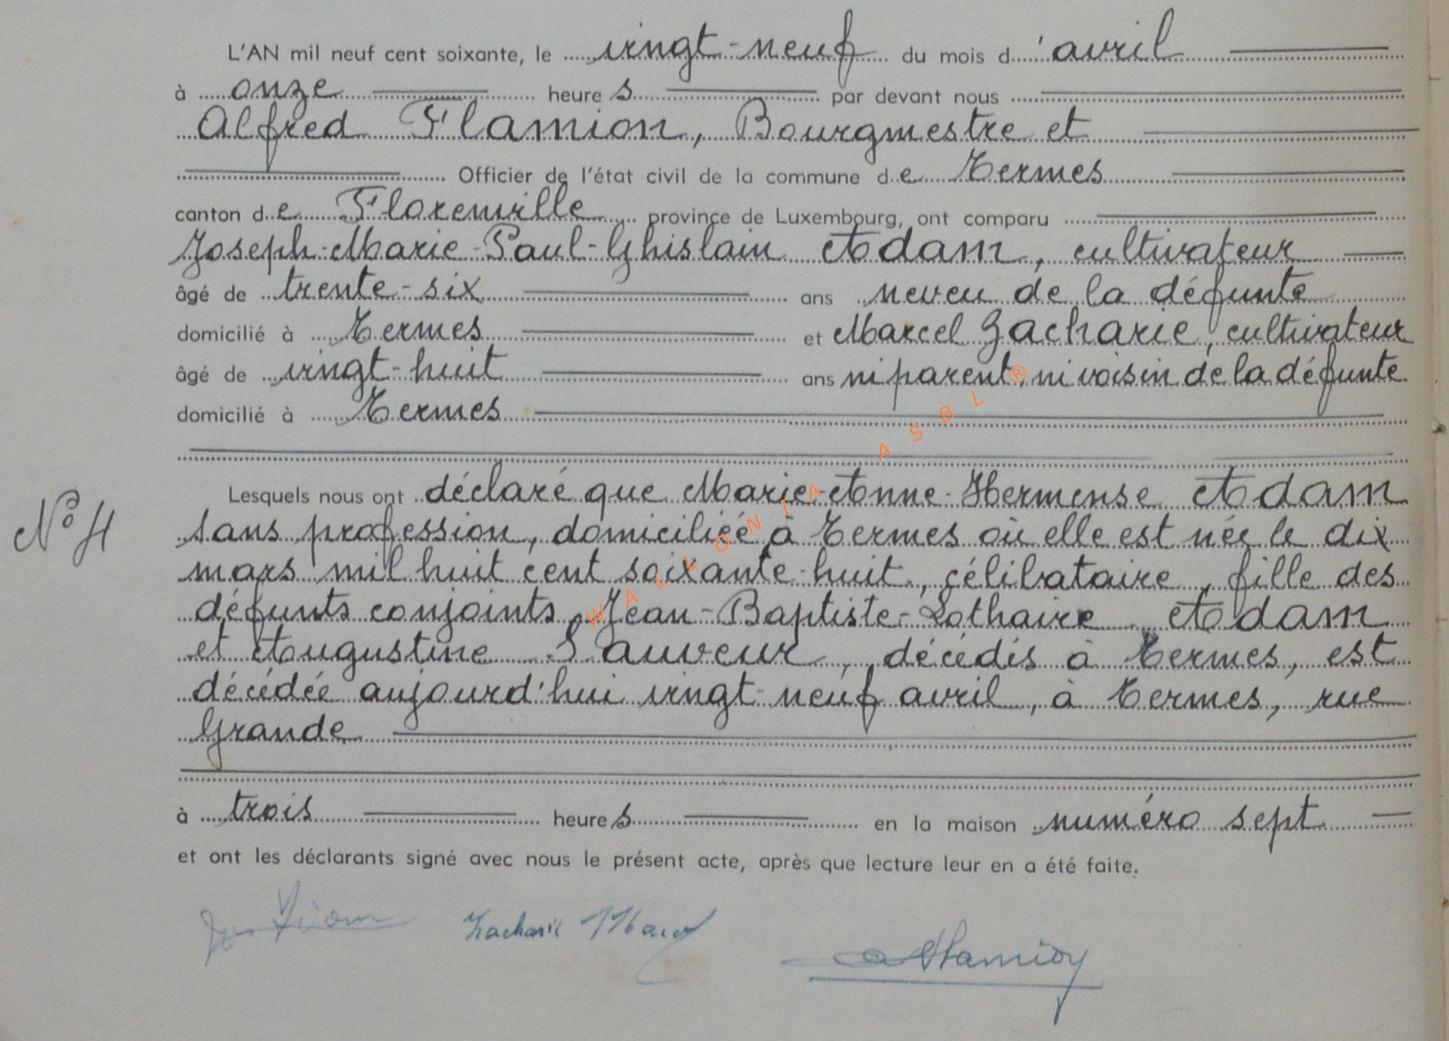 L'AN mil neuf cent soixante, le vingt-neuf du mois d'avril
à onze heures par devant nous
Alfred Flamion, Bourgmestre et
Officier de l'état civil de la commune de Termes
canton de Florenville province de Luxembourg, ont comparu
Joseph-Marie-Paul-Ghislain Adam, cultivateur
âgé de trente-six ans neveu de la défunte
domicilié à Termes et Marcel Zacharie, cultivateur
âgé de vingt-huit ans ni parent, ni voisin de la défunte
domicilié à Termes
Lesquels nous ont déclaré que Marie-Anne-Hermense Adam
N° 4 sans profession, domiciliée à Termes où elle est née le dix
mars mil huit cent soixante-huit, célibataire, fille des
défunts conjoints, Jean-Baptiste-Lothaire Adam
et Augustine Sauveur, décédés à Termes, est
décédée aujourd'hui vingt-neuf avril, à Termes, rue
Grande
à trois heures en la maison numéro sept
et ont les déclarants signé avec nous le présent acte, après que lecture leur en a été faite.
Zacharie Marcel
AFlamion
WALLONIA ASBL ®